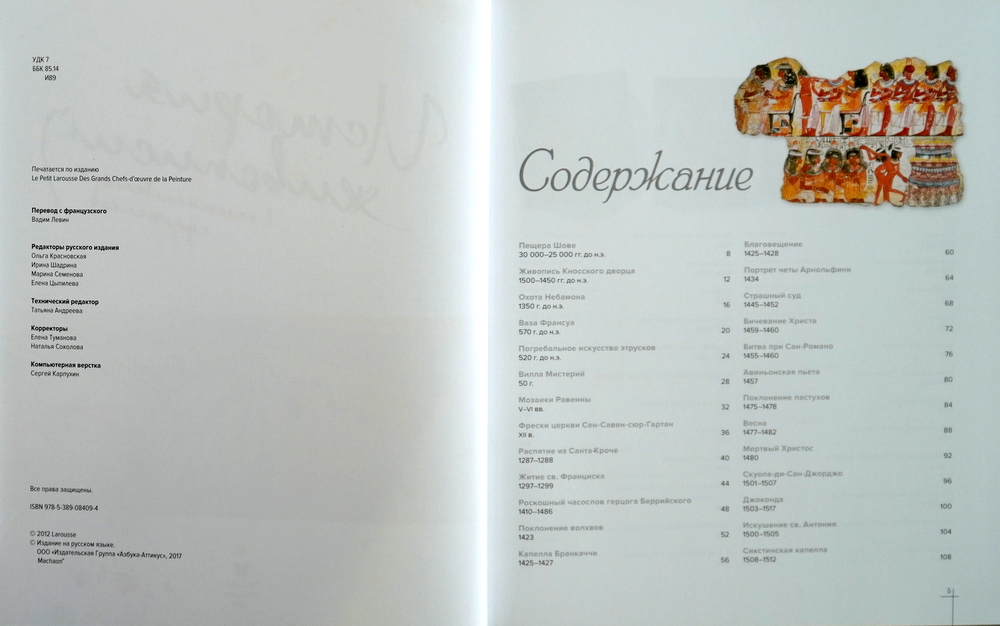 УДК 7
ББК 85.14
И89
Печатается по изданию
Le Petit Larousse Des Grands Chefs-d'œuvre de la Peinture
Перевод с французского
Вадим Левин
Редакторы русского издания
Ольга Красновская
Ирина Шадрина
Марина Семенова
Елена Цыпилева
Технический редактор
Татьяна Андреева
Корректоры
Елена Туманова
Наталья Соколова
Компьютерная верстка
Сергей Карпухин
Все права защищены.
ISBN 978-5-389-08409-4
© 2012 Larousse
© Издание на русском языке.
ООО «Издательская Группа «Азбука-Аттикус», 2017
Machaon®
Содержание
Пещера Шове
30 000–25 000 гг. до н.э. 8
Живопись Кносского дворца
1500–1450 гг. до н.э. 12
Охота Небамона
1350 г. до н.э. 16
Ваза Франсуа
570 г. до н.э. 20
Погребальное искусство этрусков
520 г. до н.э. 24
Вилла Мистерий
50 г. 28
Мозаики Равенны
V–VI вв. 32
Фрески церкви Сен-Савен-сюр-Гартан
XII в. 36
Распятие из Санта-Кроче
1287–1288 40
Житие св. Франциска
1297–1299 44
Роскошный часослов герцога Беррийского
1410–1486 48
Поклонение волхвов
1423 52
Капелла Бранкаччи
1425–1427 56
Благовещение
1425–1428 60
Портрет четы Арнольфини
1434 64
Страшный суд
1445–1452 68
Бичевание Христа
1459–1460 72
Битва при Сан-Романо
1455–1460 76
Авиньонская пьета
1457 80
Поклонение пастухов
1475–1478 84
Весна
1477–1482 88
Мертвый Христос
1480 92
Скуола-ди-Сан-Джорджо
1501–1507 96
Джоконда
1503–1517 100
Искушение св. Антония
1500–1505 104
Сикстинская капелла
1508–1512 108
5